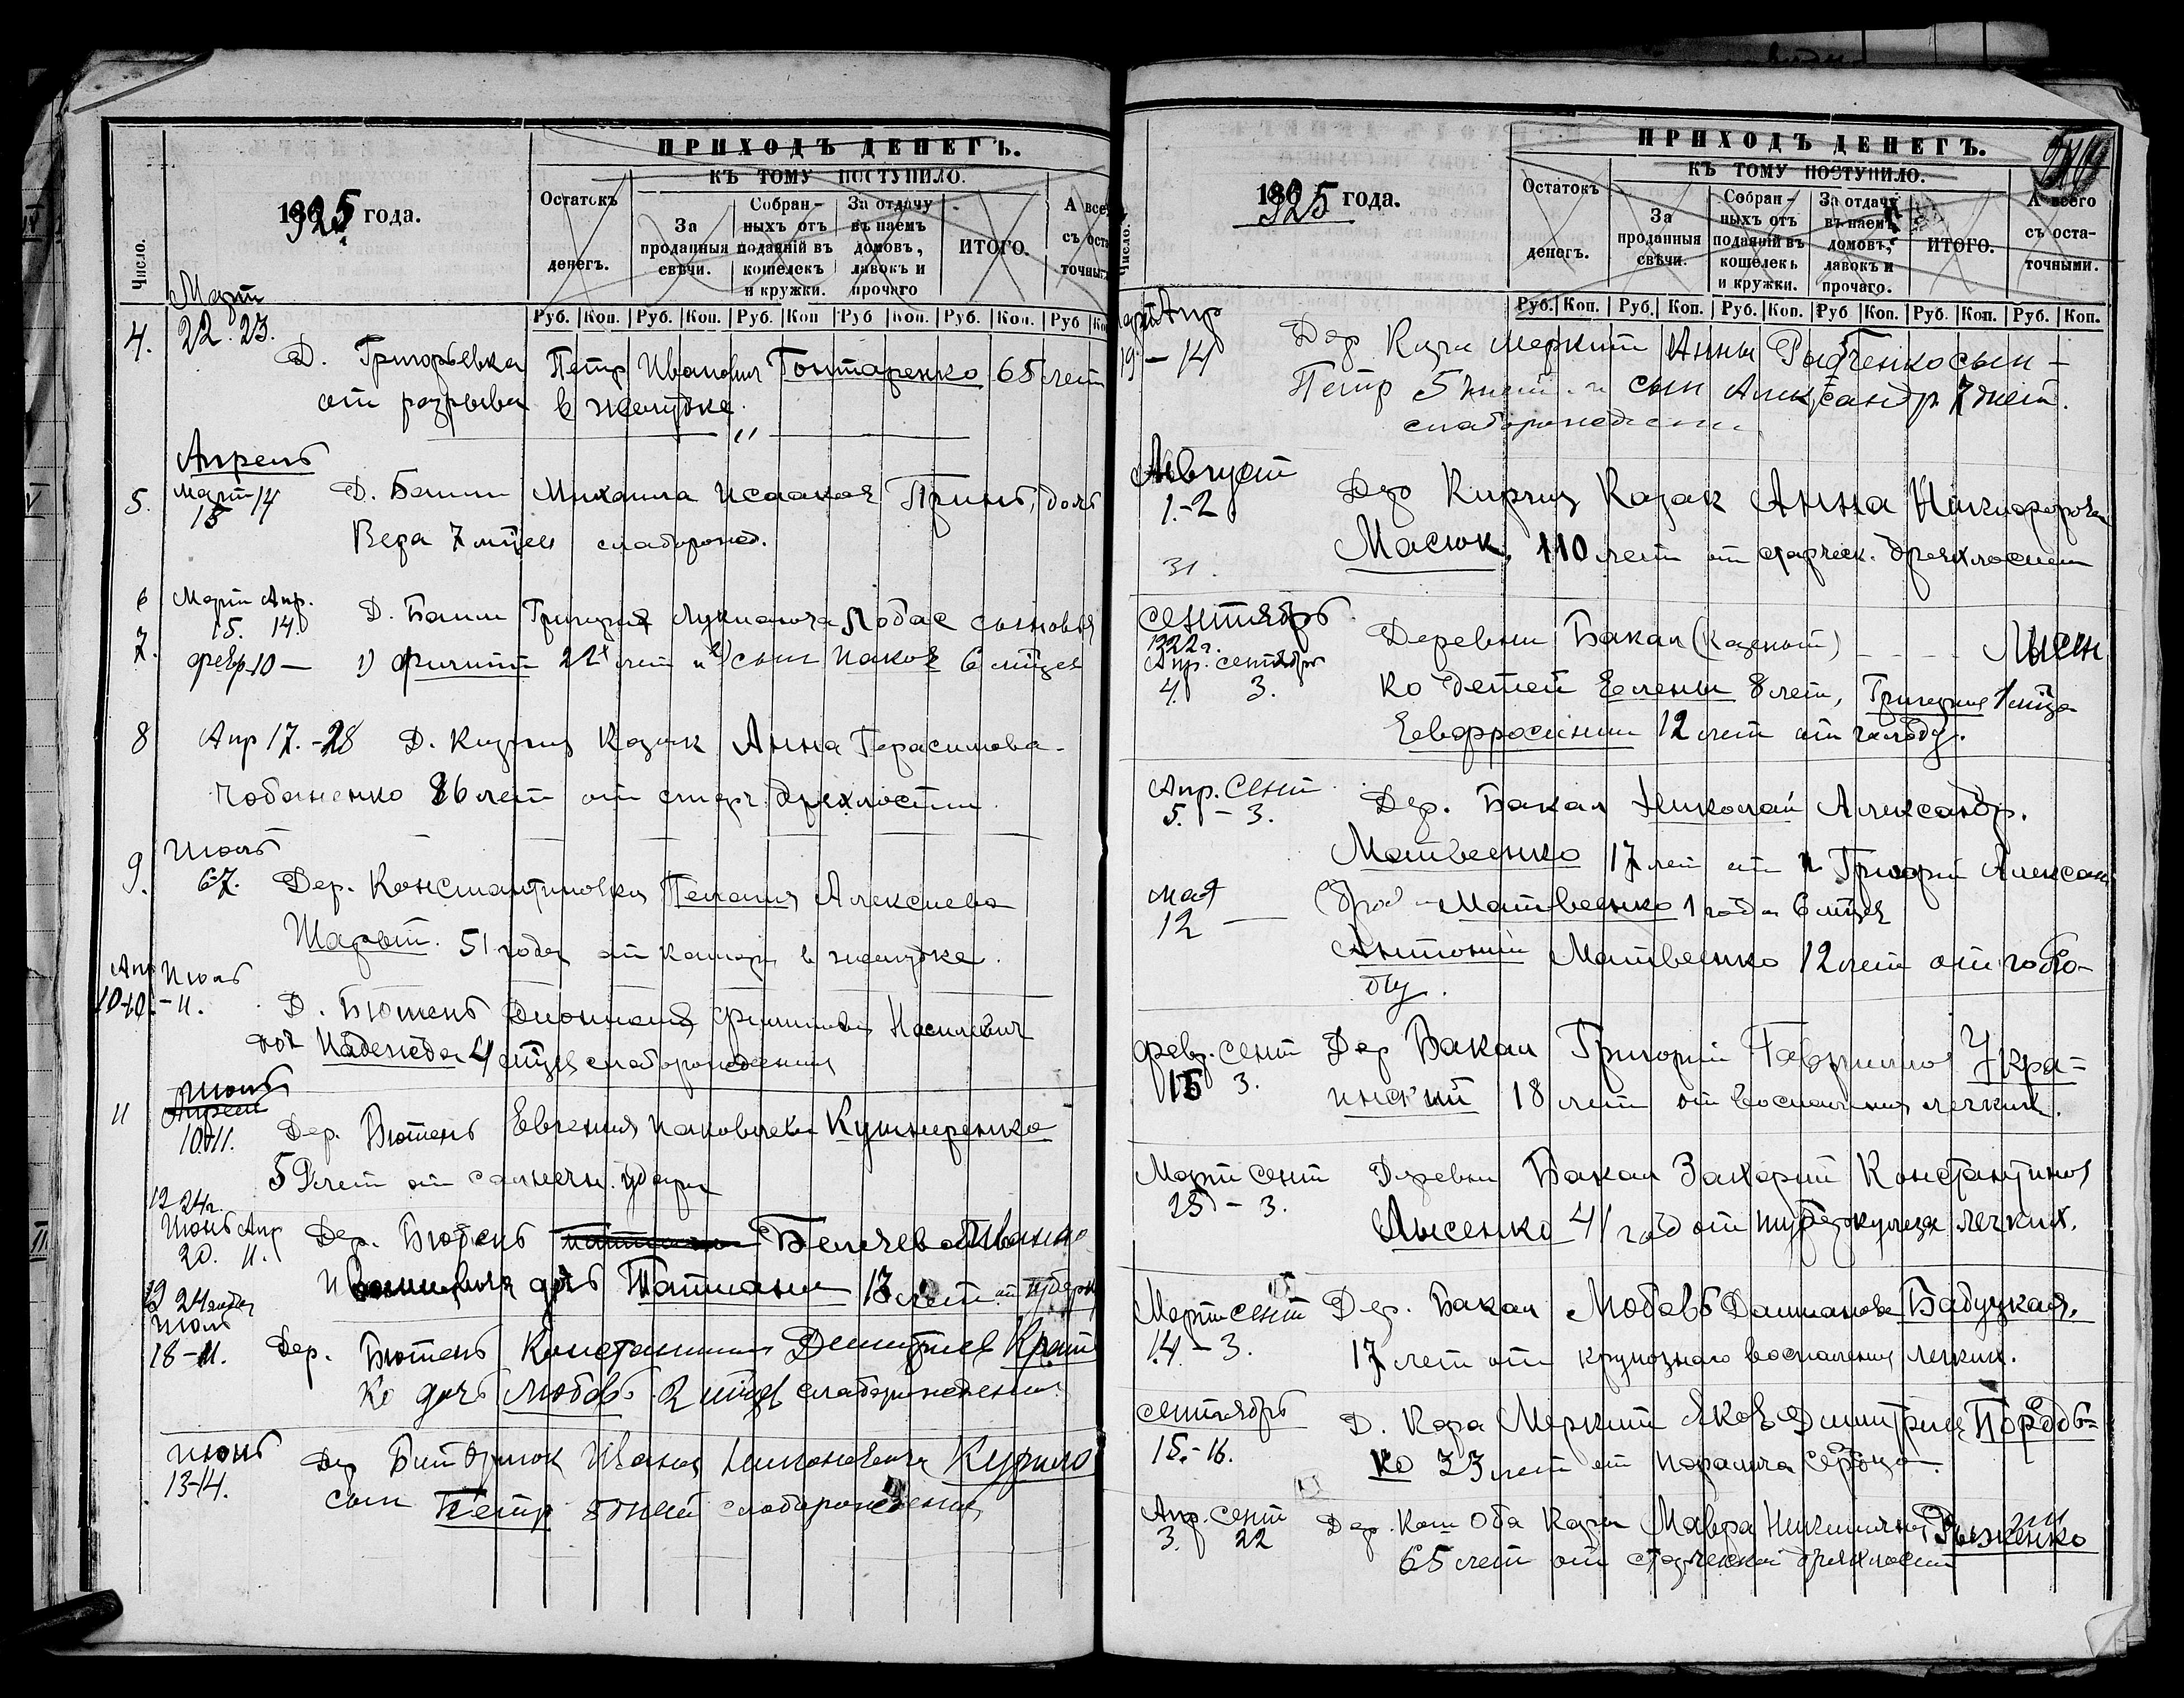 ПРИХОДЪ ДЕНЕГЪ.
КЪ ТОМУ ПОСТУПИЛО.
Число.
1925 года.
Остатокъ денегъ.
За проданныя свѣчи.
Собранныхъ отъ подаяній въ кошелекъ и кружки.
За отдачу въ наемъ домовъ, лавокъ и прочаго
ИТОГО.
А все
съ оста
точным
Руб. Коп. Руб. Коп. Руб. Коп Руб Коп. Руб. Коп. Руб Ко
Март
4. 22. 23.
Д. Григорьевка Петр Иванович Гонтаренко 65 лет
от разрыва в желудке.
Апрель
5. Март 15 14 Д. Башии Михаила Исааков Принь, дочь
Вера 7 м-цев слаборожд.
6 Март Апр. 15. 14. Д. Башии Григория Лукианова Лобас сыновья
7. февр. 10 — 1) Филипп 22 лет и 2) сын Иаков 6 м-цев
8 Апр 17.-28 Д. Киргиз Казак Анна Герасимова
Чобаненко 86 лет от старч. дряхлости.
Июль
9. 6-7. Дер. Константиновка Пелагия Алексиева
51 года от катара в желудке.
Апр Июль
10-10. - 11. Д. Бютень Филиппов Насилевич
доч Надежда 4 м-цев слаборождения
Июль
Апрель
11 10-11. Дер. Бютень Евгения Иаковлева Кушнеренко
59 лет от солнечн. удара
12 24 г.
Июнь Апр
20. 11. Дер. Бютень Белячева Ивана
дочь Татиана 13 лет от туберк
12 24 года
Июль
18-11. Дер. Бютень Константина Димитриев Крат
ко дочь Любовь 2 м-цев слаборождения
Июнь
13-14. Дер Бий Орлюк Ивана Никоновича Курило
сын Петр 8 дней слаборождения
ПРИХОДЪ ДЕНЕГЪ.
КЪ ТОМУ ПОСТУПИЛО.
Число.
1925 года.
Остатокъ денегъ.
За проданныя свѣчи.
Собранныхъ отъ подаяній въ кошелекъ и кружки.
За отдачу въ наемъ домовъ, лавокъ и прочаго.
ИТОГО.
А всего съ остаточными.
Руб. Коп. Руб. Коп. Руб. Коп. Руб Коп. Руб. Коп. Руб. Коп.
Апр
19 - 14 Дер Кара Меркит Анны Рабченко сын -
Петр 5 дней и сын Александр 7 дней.
слаборождении
Август
1.-2 Дер Киргиз Казак Анна Никифорова
Масюк, 110 лет от старческ. дряхлости
31.
сентябрь
1922 г.
Апр. сентябрь
4. 3. Деревни Бакал (Казенный) - - - - Лысен
ко детей Елены 8 лет, Григория 1 м-ца
Евфросинии 12 лет от голоду.
Апр. Сент
5. - 3. Дер. Бакал Николай Александр.
Матвеенко 17 лет от и Григорий Алексан
Мая
12 — Матвеенко 1 года 6 м-цев
Антоний Матвеенко 12 лет от голо-
ду.
февр. сент
15 3. Дер Бакал Григорий Гавриилов Укра-
инский 18 лет от воспаления легких.
Март сент
25 - 3. Деревни Бакал Захарий Константинов
Лысенко 41 год от туберкулеза легких.
Март сент
14. - 3. Дер. Бакал Любовь Дамианова Бабуцкая.
17 лет от крупознаго воспаления легких.
сентябрь
15.-16. Д. Кара Меркит Яков Димитриев Породь-
ко 33 лет от паралича сердца.
Апр. сент
3. 22 Дер. Кош Оба Кара Мавра Никитична Рыженко
65 лет от старческой дряхлости